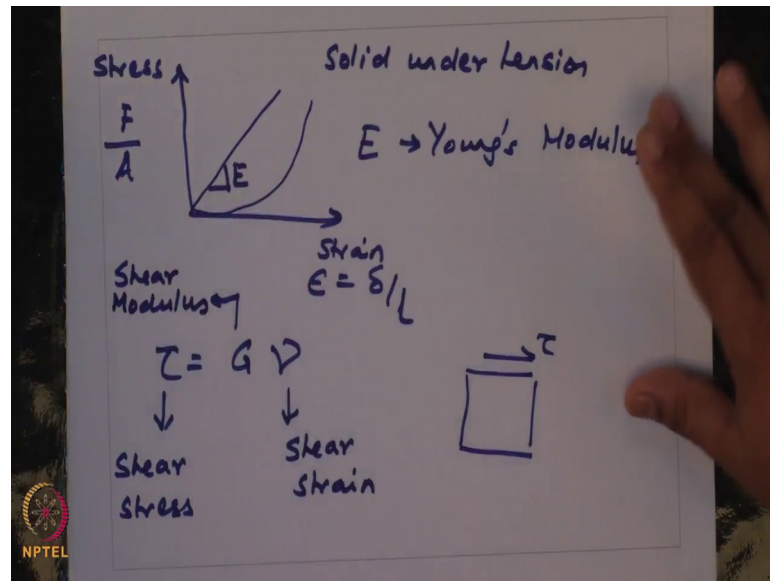 Stress
Solid under tension
F
A
E
E → Young's Modulus
Strain
ε = δ/L
Shear
Modulus
τ = G γ
τ
Shear
stress
Shear
strain
NPTEL